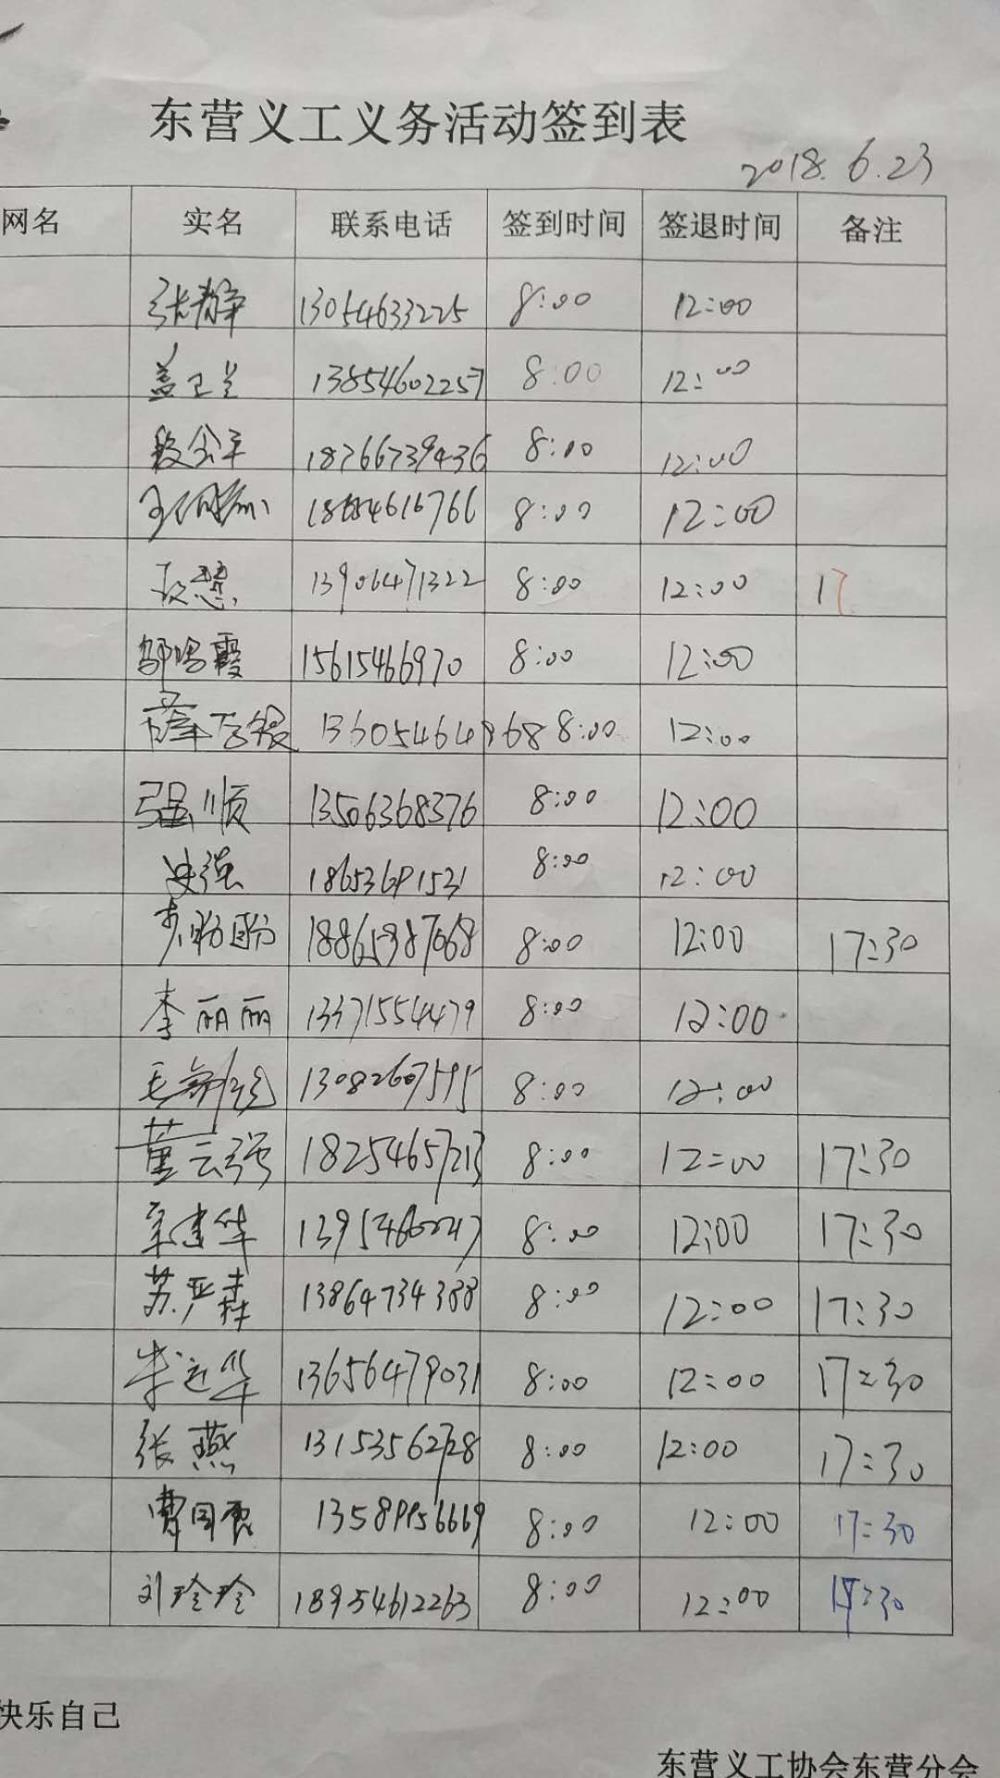 东营义工义务活动签到表
2018.6.23
网名 实名 联系电话 签到时间 签退时间 备注
张静 13054633225 8:00 12:00
盖卫兰 13854602257 8:00 12:00
段公平 18766739436 8:00 12:00
8:00 12:00
13906471322 8:00 12:00 17
邵培霞 15615466970 8:00 12:00
13605464968 8:00 12:00
强顺 13506368376 8:00 12:00
史强 18653691531 8:00 12:00
18865987068 8:00 12:00 17:30
李丽丽 13371554479 8:00 12:00
13082607595 8:00 12:00
董云强 18254657213 8:00 12:00 17:30
8:00 12:00 17:30
苏严森 13864734388 8:00 12:00 17:30
李远华 13656479031 8:00 12:00 17:30
张燕 13153562728 8:00 12:00 17:30
8:00 12:00 17:30
刘玲玲 18954612263 8:00 12:00
快乐自己
东营义工协会东营分会